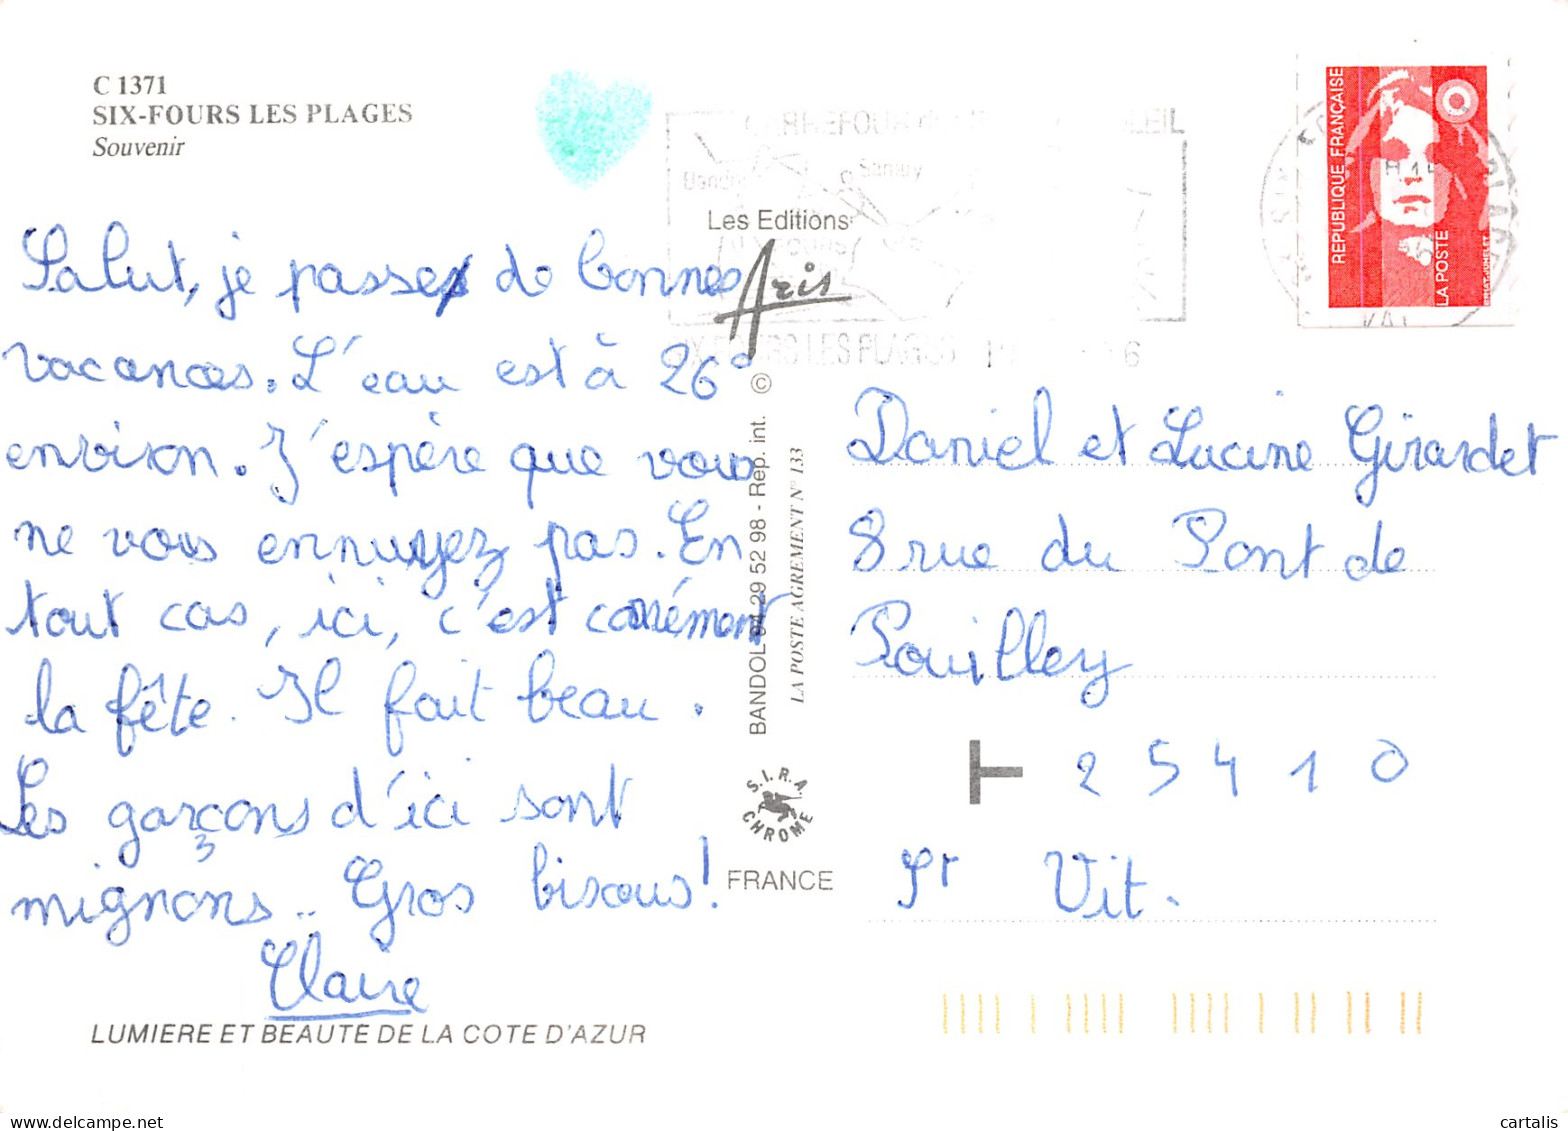 C 1371
SIX-FOURS LES PLAGES
Souvenir
Salut, je passe de bonnes
vacances. L'eau est à 26°
environ. J'espère que vous
ne vous ennuyez pas. En
tout cas, ici, c'est carrément
la fête. Il fait beau.
Les garçons d'ici sont
mignons.. Gros bisous!
Claire
LUMIERE ET BEAUTE DE LA COTE D'AZUR
Les Editions
Aris
BANDOL 94 29 52 98 - Rep. int. ©
LA POSTE AGREMENT N° 133
S.I.R.A.
CHROME
FRANCE
Sanary
LES PLAGES
REPUBLIQUE FRANÇAISE
LA POSTE
Daniel et Lucine Girardet
8 rue du Pont de
Pouilley
T 25410
St Vit.
www.delcampe.net
cartalis